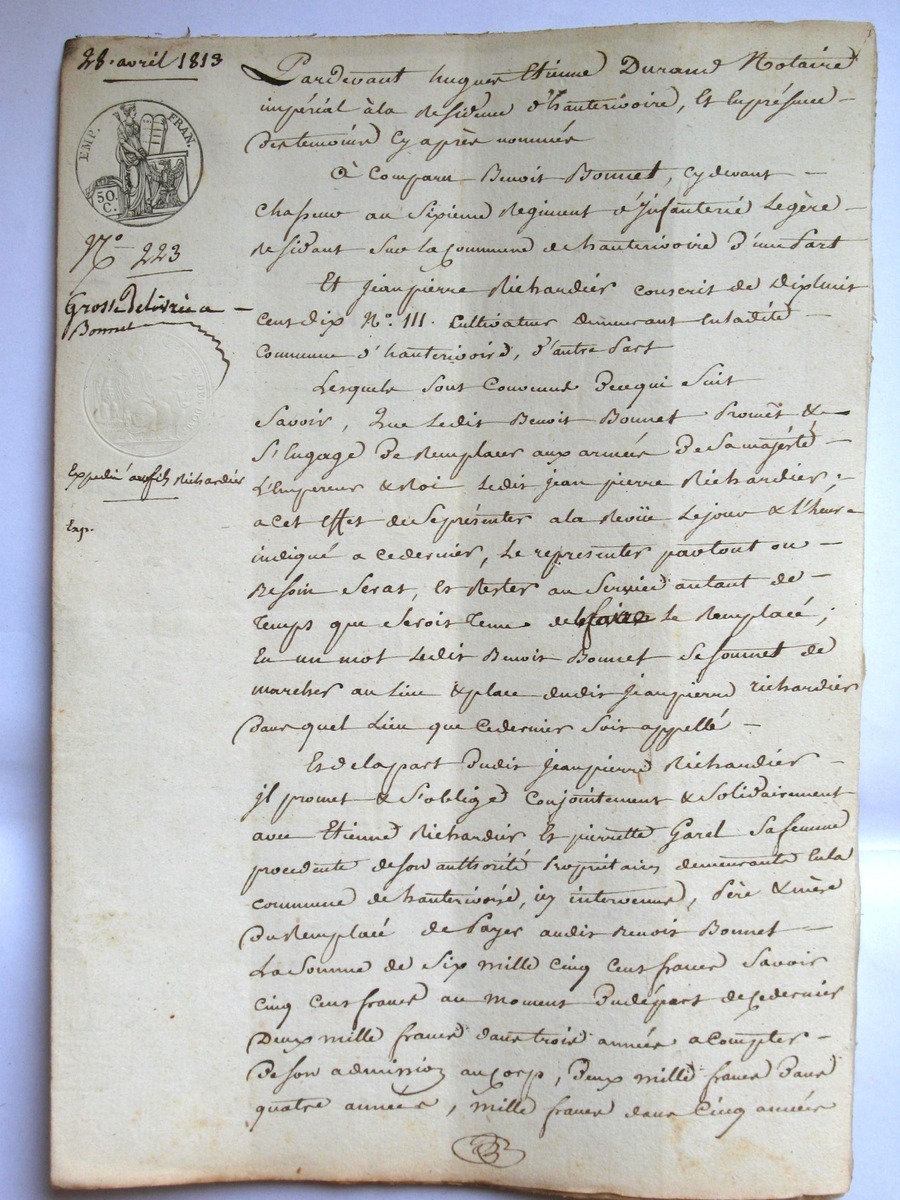 28. avril 1813
EMP. FRAN.
50 C.
N.o 223
Grosse delivrée a
Bonnet
Expedié au fils Richardier
Exp.
Pardevant hugues Etienne Durand Notaire
impérial à la Residence d'hauterivoire, Et En présence
des temoins Cy après nommés
A Comparu Benoit Bonnet, Cy devant
Chasseur au Sixieme Regiment d'Infanterie Legère
Residant Sur la Commune de hauterivoire d'une Part
Et Jean pierre Richardier conscrit de Dix huit
Cent dix N.o 111. Cultivateur Demeurant En la dite
Commune d'hauterivoire, d'autre Part
Lesquels Sont Convenus De ce qui Suit
Savoir, Que Ledit Benoit Bonnet Promet &
S'Engage De Remplacer aux armées De Sa majesté
L'Empereur & Roi Ledit Jean pierre Richardier,
a Cet Effet de Se présenter a la Revüe Le jour & l'heure
indiqué a Ce dernier, Le representer partout ou
Besoin Serat, Et Rester au Service autant de
Temps que Seroit Tenu de le faire Le Remplacé;
En un mot Ledit Benoit Bonnet Se Soumet de
marcher au Lieu & place dudit Jean pierre richardier
dans quel Lieu que Ce dernier Soit appellé
Et de la part Dudit Jean pierre Richardier
il promet & S'oblige Conjointement & Solidairement
avec Etienne Richardier Et pierrette Garel Sa femme
procedente de Son authorité Propriétaires demeurants En la
Commune de hauterivoire, ici intervenus, Père & mère
Du Remplacé de Payer audit Benoit Bonnet
La Somme de Six mille Cinq Cent francs Savoir
Cinq Cent francs au moment Du départ de Ce dernier
Deux mille francs dans trois années a Compter
De Son admission au Corp, Deux mille francs Dans
quatre années, mille francs dans Cinq années